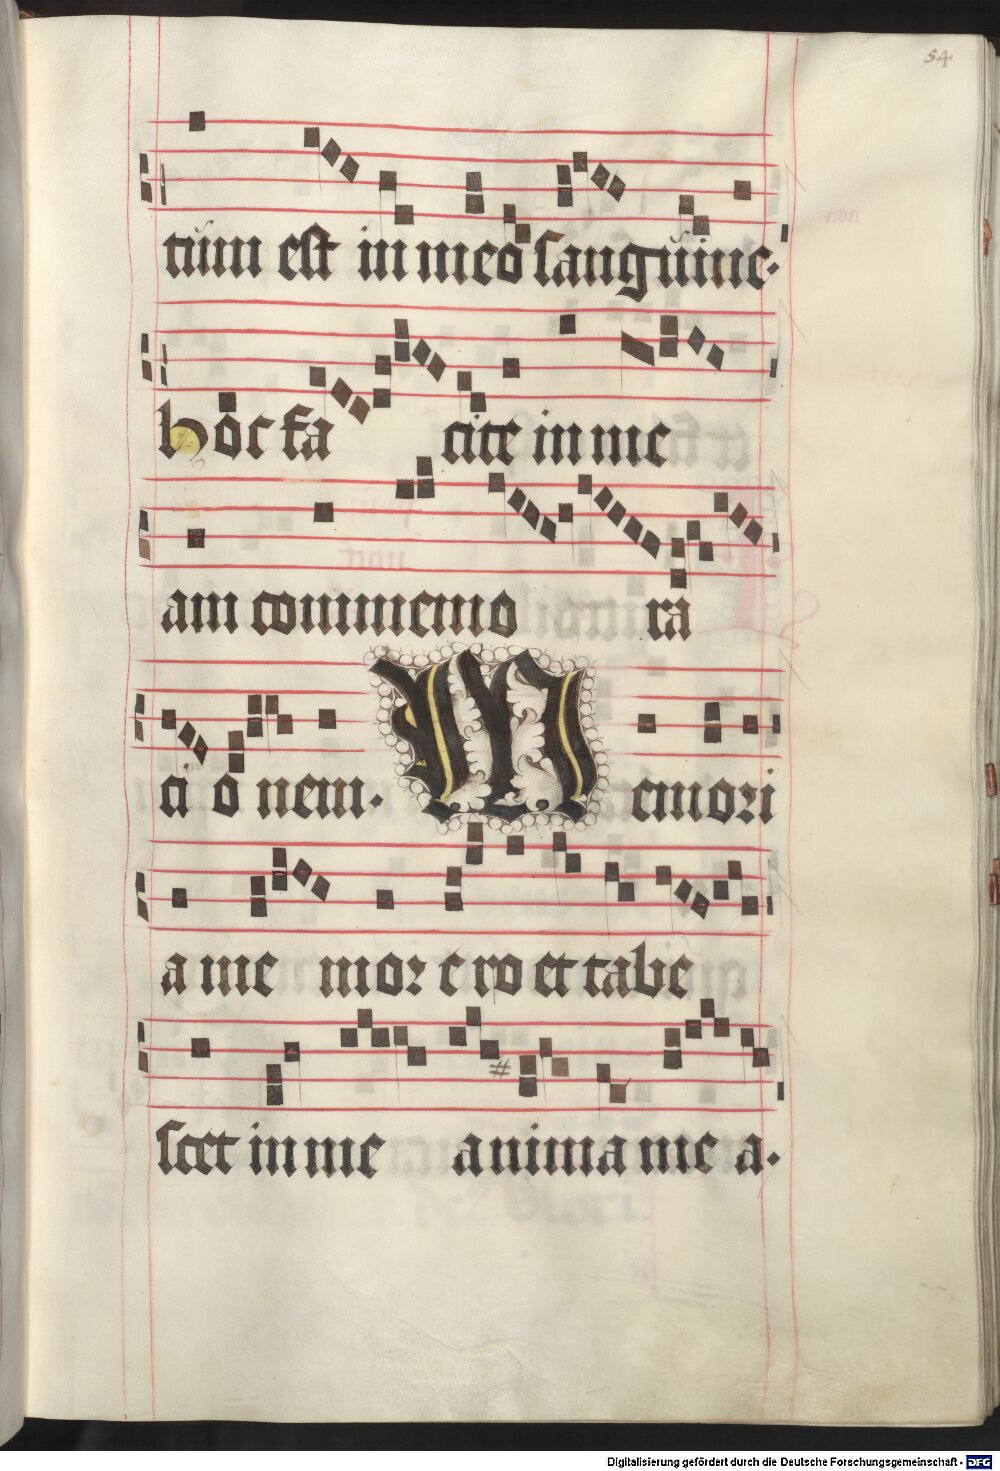 54
tum est in meo sanguine.
hoc fa cite in me
am commemo ra
ci o nem. Memori
a me mor e ro et tabe
scet in me anima me a.
Digitalisierung gefördert durch die Deutsche Forschungsgemeinschaft - DFG